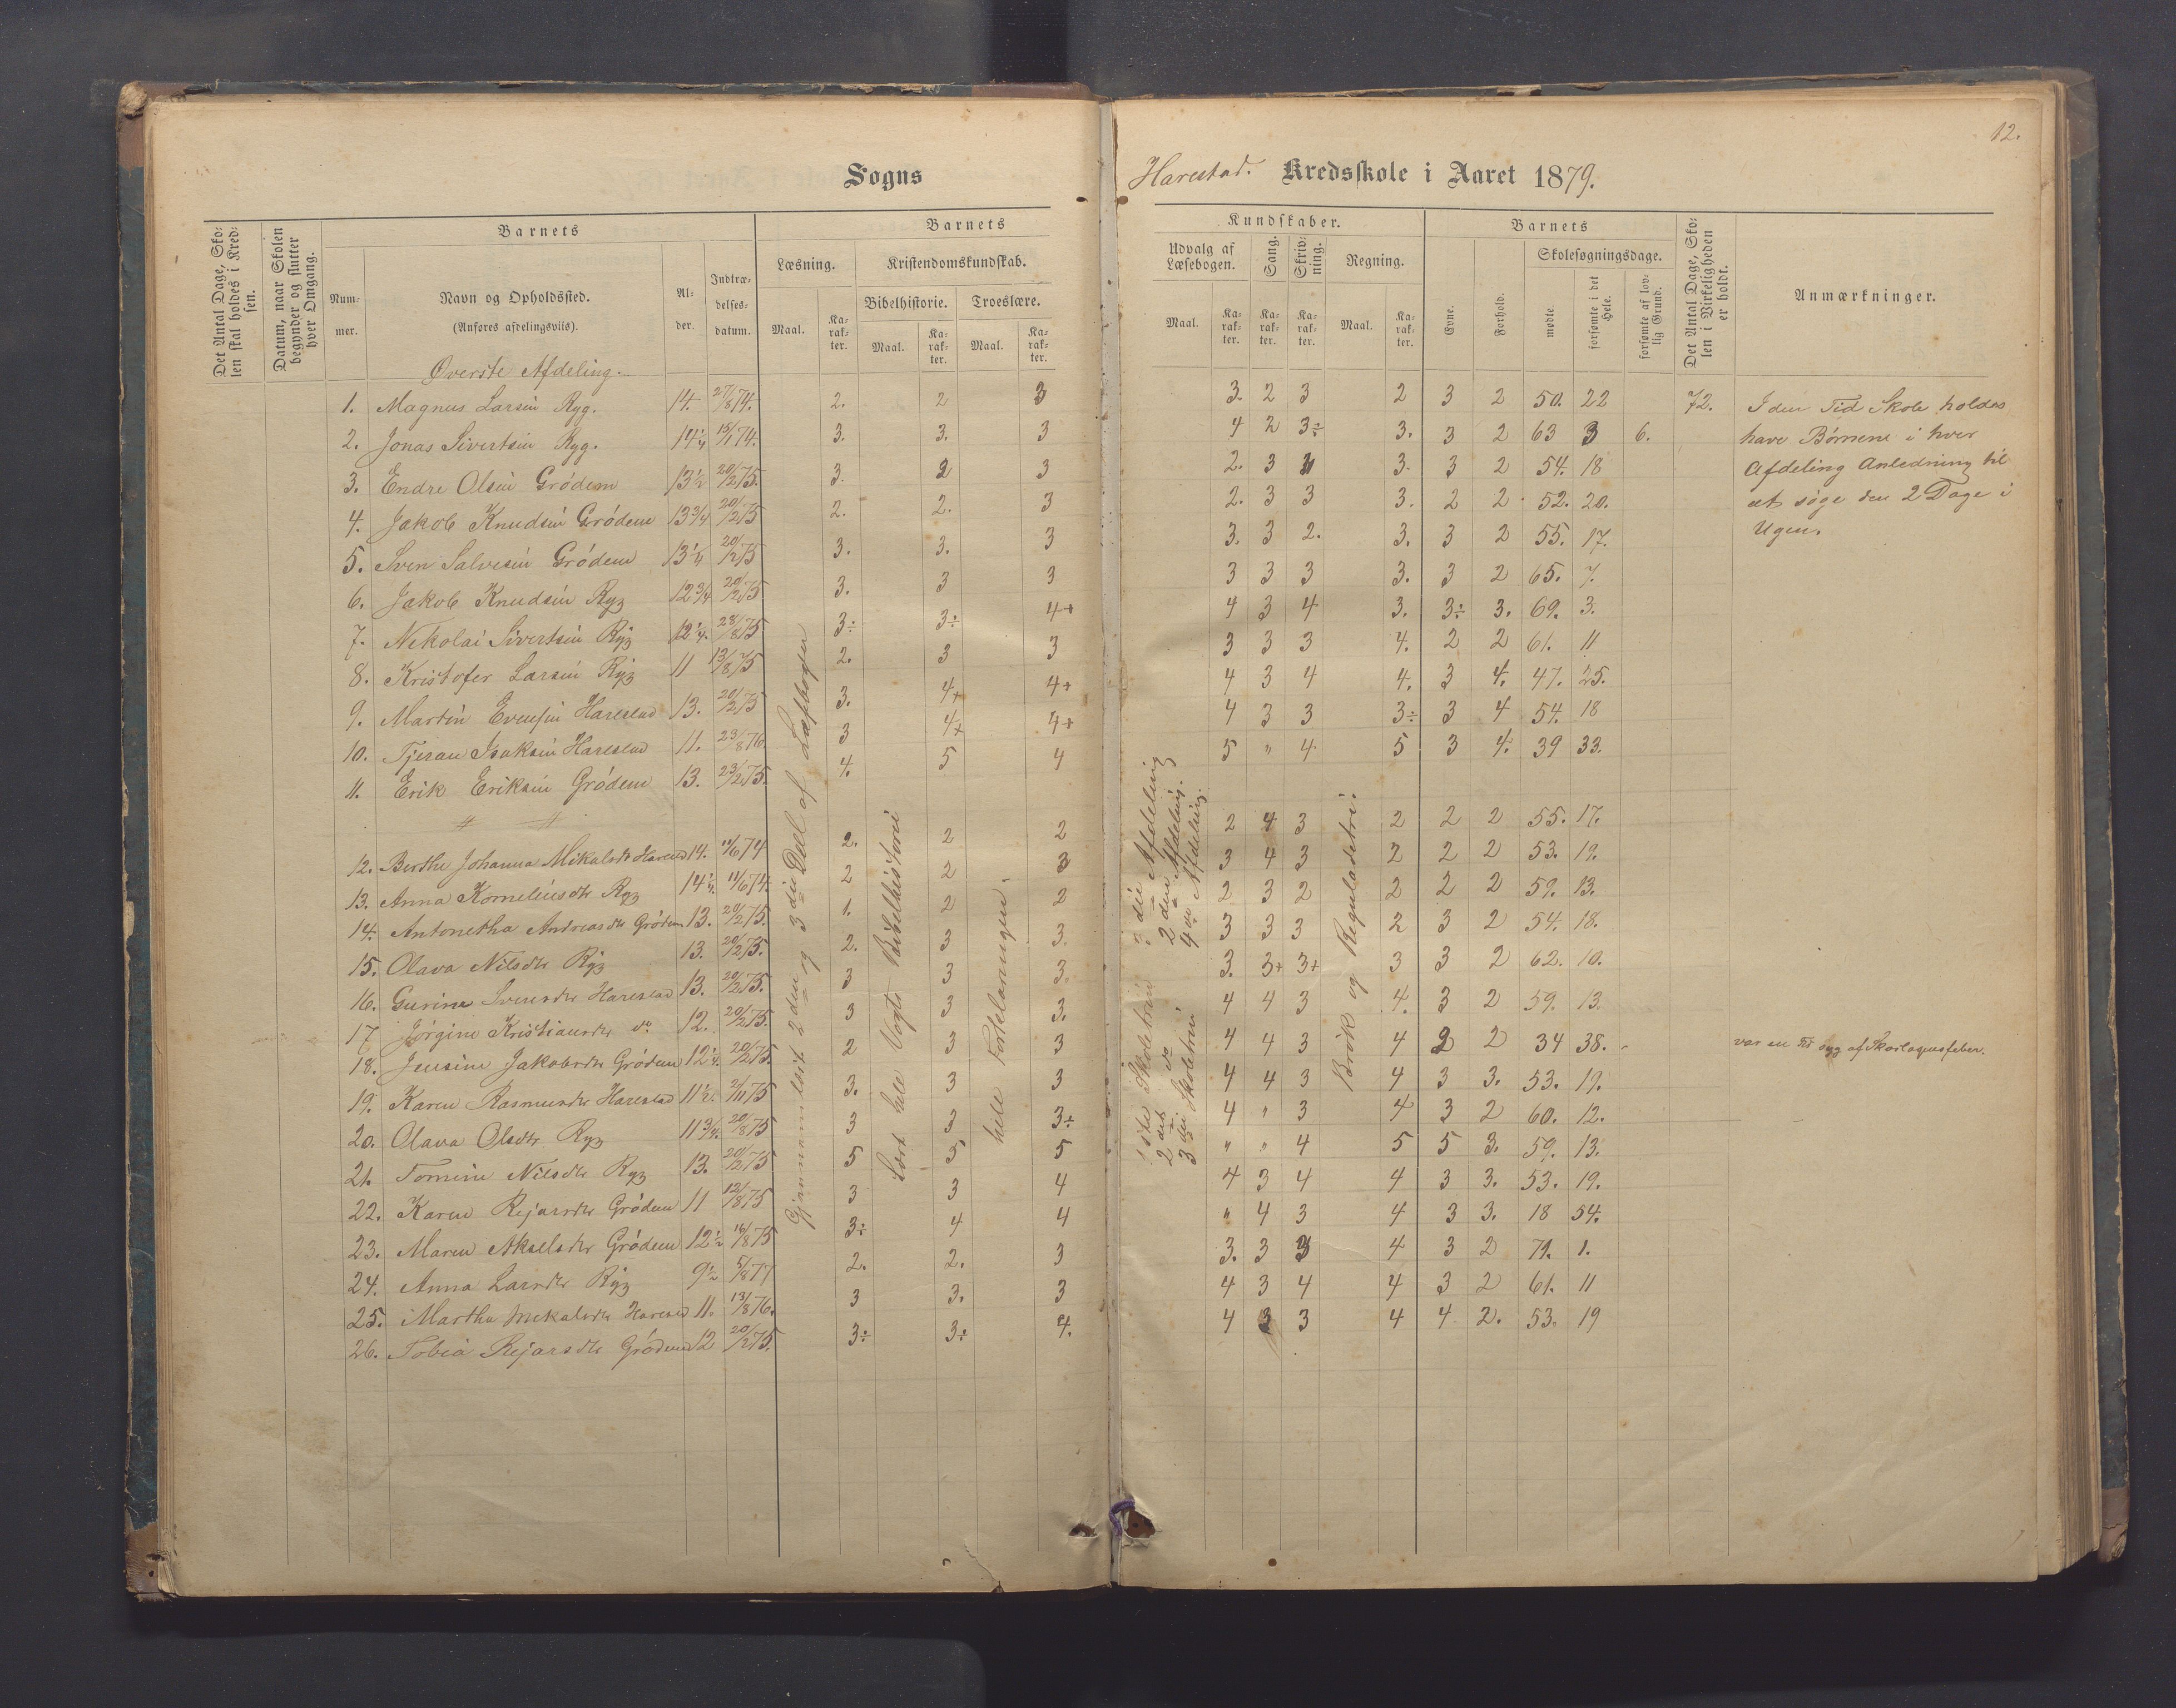 12.
Sogns
Harestad. Kredsskole i Aaret 1879.
Det Antal Dage, Sko-
len skal holdes i Kred-
sen.
Datum, naar Skolen
begynder og slutter
hver Omgang.
Barnets
Num-
mer.
Navn og Opholdssted.
(Anføres afdelingsviis).
Al-
der.
Indtræ-
delses-
datum.
Barnets
Læsning.
Kristendomskundskab.
Bibelhistorie. Troeslære.
Maal. Ka-rak-ter. Maal. Ka-rak-ter. Maal. Ka-rak-ter.
Kundskaber.
Udvalg af Læsebogen. Sang. Skriv-ning. Regning.
Maal. Ka-rak-ter. Ka-rak-ter. Ka-rak-ter. Maal. Ka-rak-ter.
Barnets
Evne. Forhold.
Skolesøgningsdage.
mødte. forsømte i det Hele. forsømte af lov-lig Grund.
Det Antal Dage, Sko-
len i Virkeligheden
er holdt.
Anmærkninger.
Øverste Afdeling.
1. Magnus Larsin Ryg. 14. 27/8 74. 2. 2 3 3. 2 3 2 3 2 50. 22 72.
2. Jonas Sivertsin Ryg. 14 1/4 15/1 74. 3. 3. 3 4 2 3÷ 3. 3 2 63 3 6.
3. Endre Olsin Grödem 13 1/2 20/2 75. 3. 2 3 2. 3 3 3. 3 2 54. 18
4. Jakob Knudsin Grödem 13 3/4 20/2 75 2. 2. 3 2. 3 3 3. 2 2 52. 20.
5. Sven Salvesin Grödem 13 1/4 20/2 75 3. 3. 3 3. 3 2. 3. 3 2 55. 17.
6. Jakob Knudsin Ryg 12 3/4 20/2 75 3. 3 3 3 3 3 3. 3 2 65. 7.
7. Nikolai Sivertsin Ryg 12 1/4. 28/8 75 3÷ 3÷ 4+ 4 3 4 3. 3÷ 3. 69. 3.
8. Kristofer Larsin Ryg 11 13/8 75 2. 3 3 3 3 3 4. 2 2 61. 11
9. Martin Evensin Harestad 13. 20/2 75 3. 4+ 4+ 4 3 4 4. 3 4. 47. 25.
10. Tjeran Isaksin Harestad 11. 23/8 76. 3 4+ 4+ 4 3 3 3÷ 3 4 54. 18
11. Erik Eriksin Grödem 13. 23/2 75. 4. 5 4 5 " 4 5 3 4. 39 33.
12. Berthe Johanna Mikalsdtr Harestad 14. 11/6 74 2. 2 2 2 4 3 2 2 2 55. 17.
13. Anna Kornelius dtr Ryg 14 1/4. 11/6 74. 2 2 3 3 4 3 2 2 2 53. 19.
14. Antonetha Andreas dtr Grödem 13. 20/2 75. 1. 2 2 2 3 2 2 2 2 59. 13.
15. Olava Nilsdtr Ryg 13. 20/2 75. 2. 3 3. 3 3 3 2 3 2 54. 18.
16. Gurine Svensdtr Harestad 13. 20/2 75. 3 3 3. 3. 3+ 3+ 3 3 2 62. 10.
17 Jörgine Kristiansdtr do 12. 20/2 75. 3 3 3. 4 4 3 4. 3 2 59. 13.
18. Jensine Jakobsdtr Grödem 12 1/4. 20/2 75. 2 3 3 4 4 3 4 2 2 34 38.
19. Karen Rasmusdtr Harestad 11 1/2. 2/11 75 3. 3 3 4 4 3 4 3 3. 53. 19.
20. Olava Olsdtr Ryg 11 3/4. 20/8 75 3 3 3÷ 4 " 3 4 3 2 60. 12.
21. Tomine Nilsdtr Ryg 13. 20/2 75 5 5 5 " " 4 5 5 3. 59. 13.
22. Karen Rejarsdtr Grödem 11 12/8 75 3 3 4 4 3 4 4 3 3. 53. 19.
23. Maren Akselsdtr Grödem 12 1/2 16/8 75 3÷ 4 4 " 4 3 4 3 3. 18 54.
24. Anna Larsdtr Ryg 9 1/2 5/8 77 2. 2. 3 3. 3 3 4 3 2 71. 1.
25. Martha Mekalsdtr Harestad 11. 13/8 76. 3 3. 3 4 3 4 4 3 2 61. 11
26. Tobia Rejarsdtr Grödem 12 20/2 75. 3÷ 3÷ 4. 4 3 3 4 4 2. 53. 19
Gjennemlæst 2den og 3die Deel af Læsebogen
Lært hele Vogts Bibelhistorie
hele Forklaringen.
1ste Skoletrin 3die Afdeling
2det do 2den Afdeling.
3die Skoletrin 4de Afdeling.
Brök og Reguladetri.
I den Tid Skole holdes
have Börnene i hver
Afdeling Anledning til
at söge den 2 Dage i
Ugen.
var en Tid syg af Skarlagensfeber.